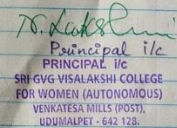 Principal i/c
PRINCIPAL i/c
SRI GVG VISALAKSHI COLLEGE
FOR WOMEN (AUTONOMOUS)
VENKATESA MILLS (POST),
UDUMALPET - 642 128.